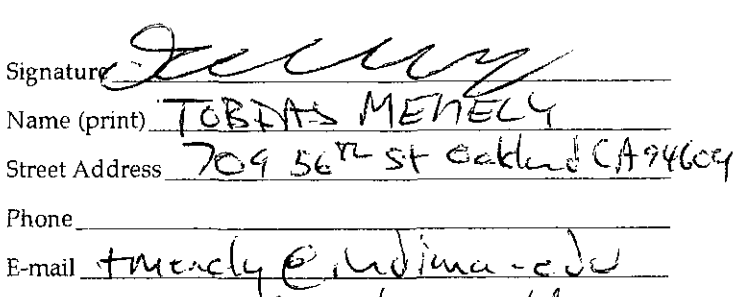 Signature
Name (print) TOBIAS MENELY
Street Address 709 56th St Oakland CA 94609
Phone
E-mail tmenely@indiana.edu